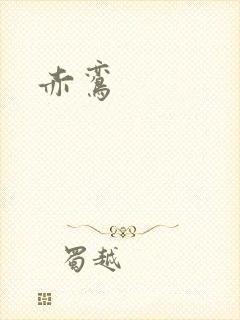 赤鸾
蜀越